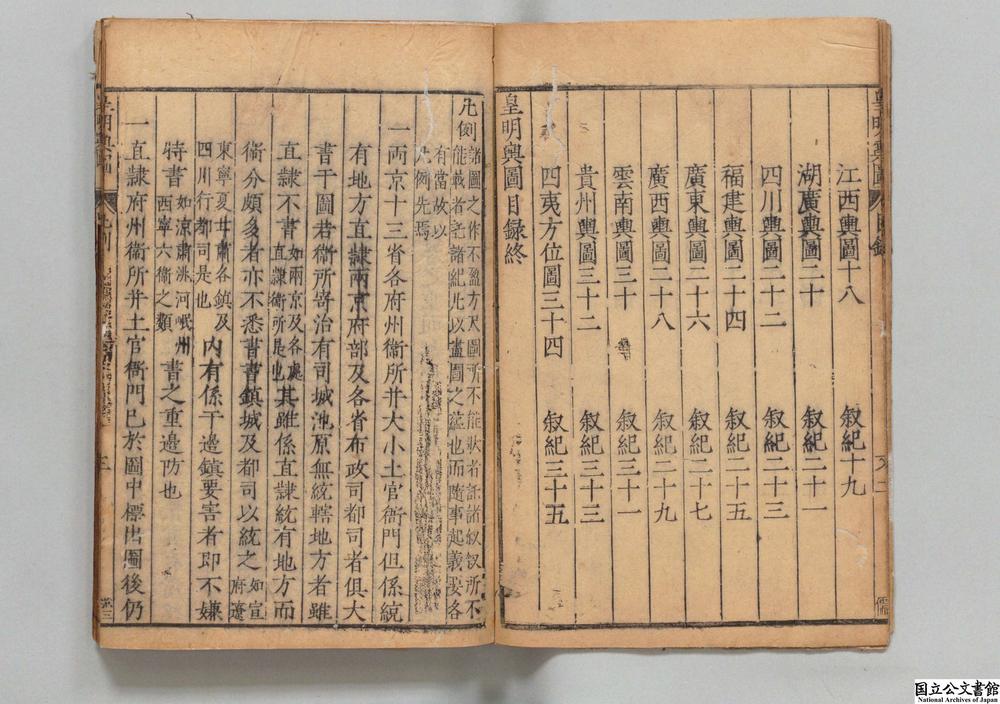 江西輿圖十八 叙紀十九
湖廣輿圖二十 叙紀二十一
四川輿圖二十二 叙紀二十三
福建輿圖二十四 叙紀二十五
廣東輿圖二十六 叙紀二十七
廣西輿圖二十八 叙紀二十九
雲南輿圖三十 叙紀三十一
貴州輿圖三十二 叙紀三十三
四夷方位圖三十四 叙紀三十五
皇明輿圖目録終
凡例諸圖之作不盈方尺圖所不能狀者託諸叙叙所不
能載者託諸紀凡以盡圖之蘊也而隨事起義妥各
有當故以
凡例先焉
一両京十三省各府州衞所并大小土官衙門但係統
有地方直隷兩京府部及各省布政司都司者俱大
書于圖若衞所寄治有司城池原無統轄地方者雖
直隷不書如兩京及各處直隷衞所是也其雖係直隷統有地方而
衞分頗多者亦不悉書書鎮城及都司以統之如宣府遼
東寧夏甘肅各鎮及四川行都司是也内有係干邊鎮要害者即不嫌
特書如涼肅洮河岷州西寧六衞之類書之重邊防也
一直隷府州衞所并土官衙門已於圖中標出圖後仍
国立公文書館
National Archives of Japan